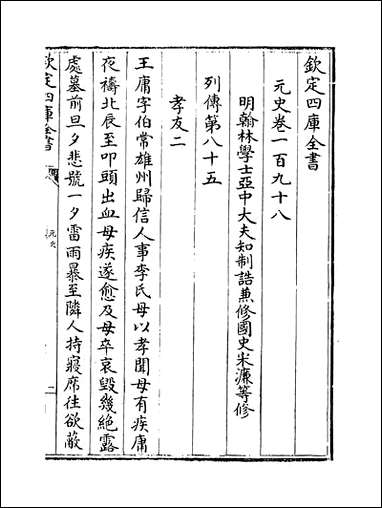 欽定四庫全書
元史卷一百九十八
明翰林學士亞中大夫知制誥兼修國史宋濂等修
列傳第八十五
孝友二
王庸字伯常雄州歸信人事李氏母以孝聞母有疾庸
夜禱北辰至叩頭出血母疾遂愈及母卒哀毀幾絶露
處墓前旦夕悲號一夕雷雨暴至隣人持寢席往欲蔽
欽定四庫全書
元史